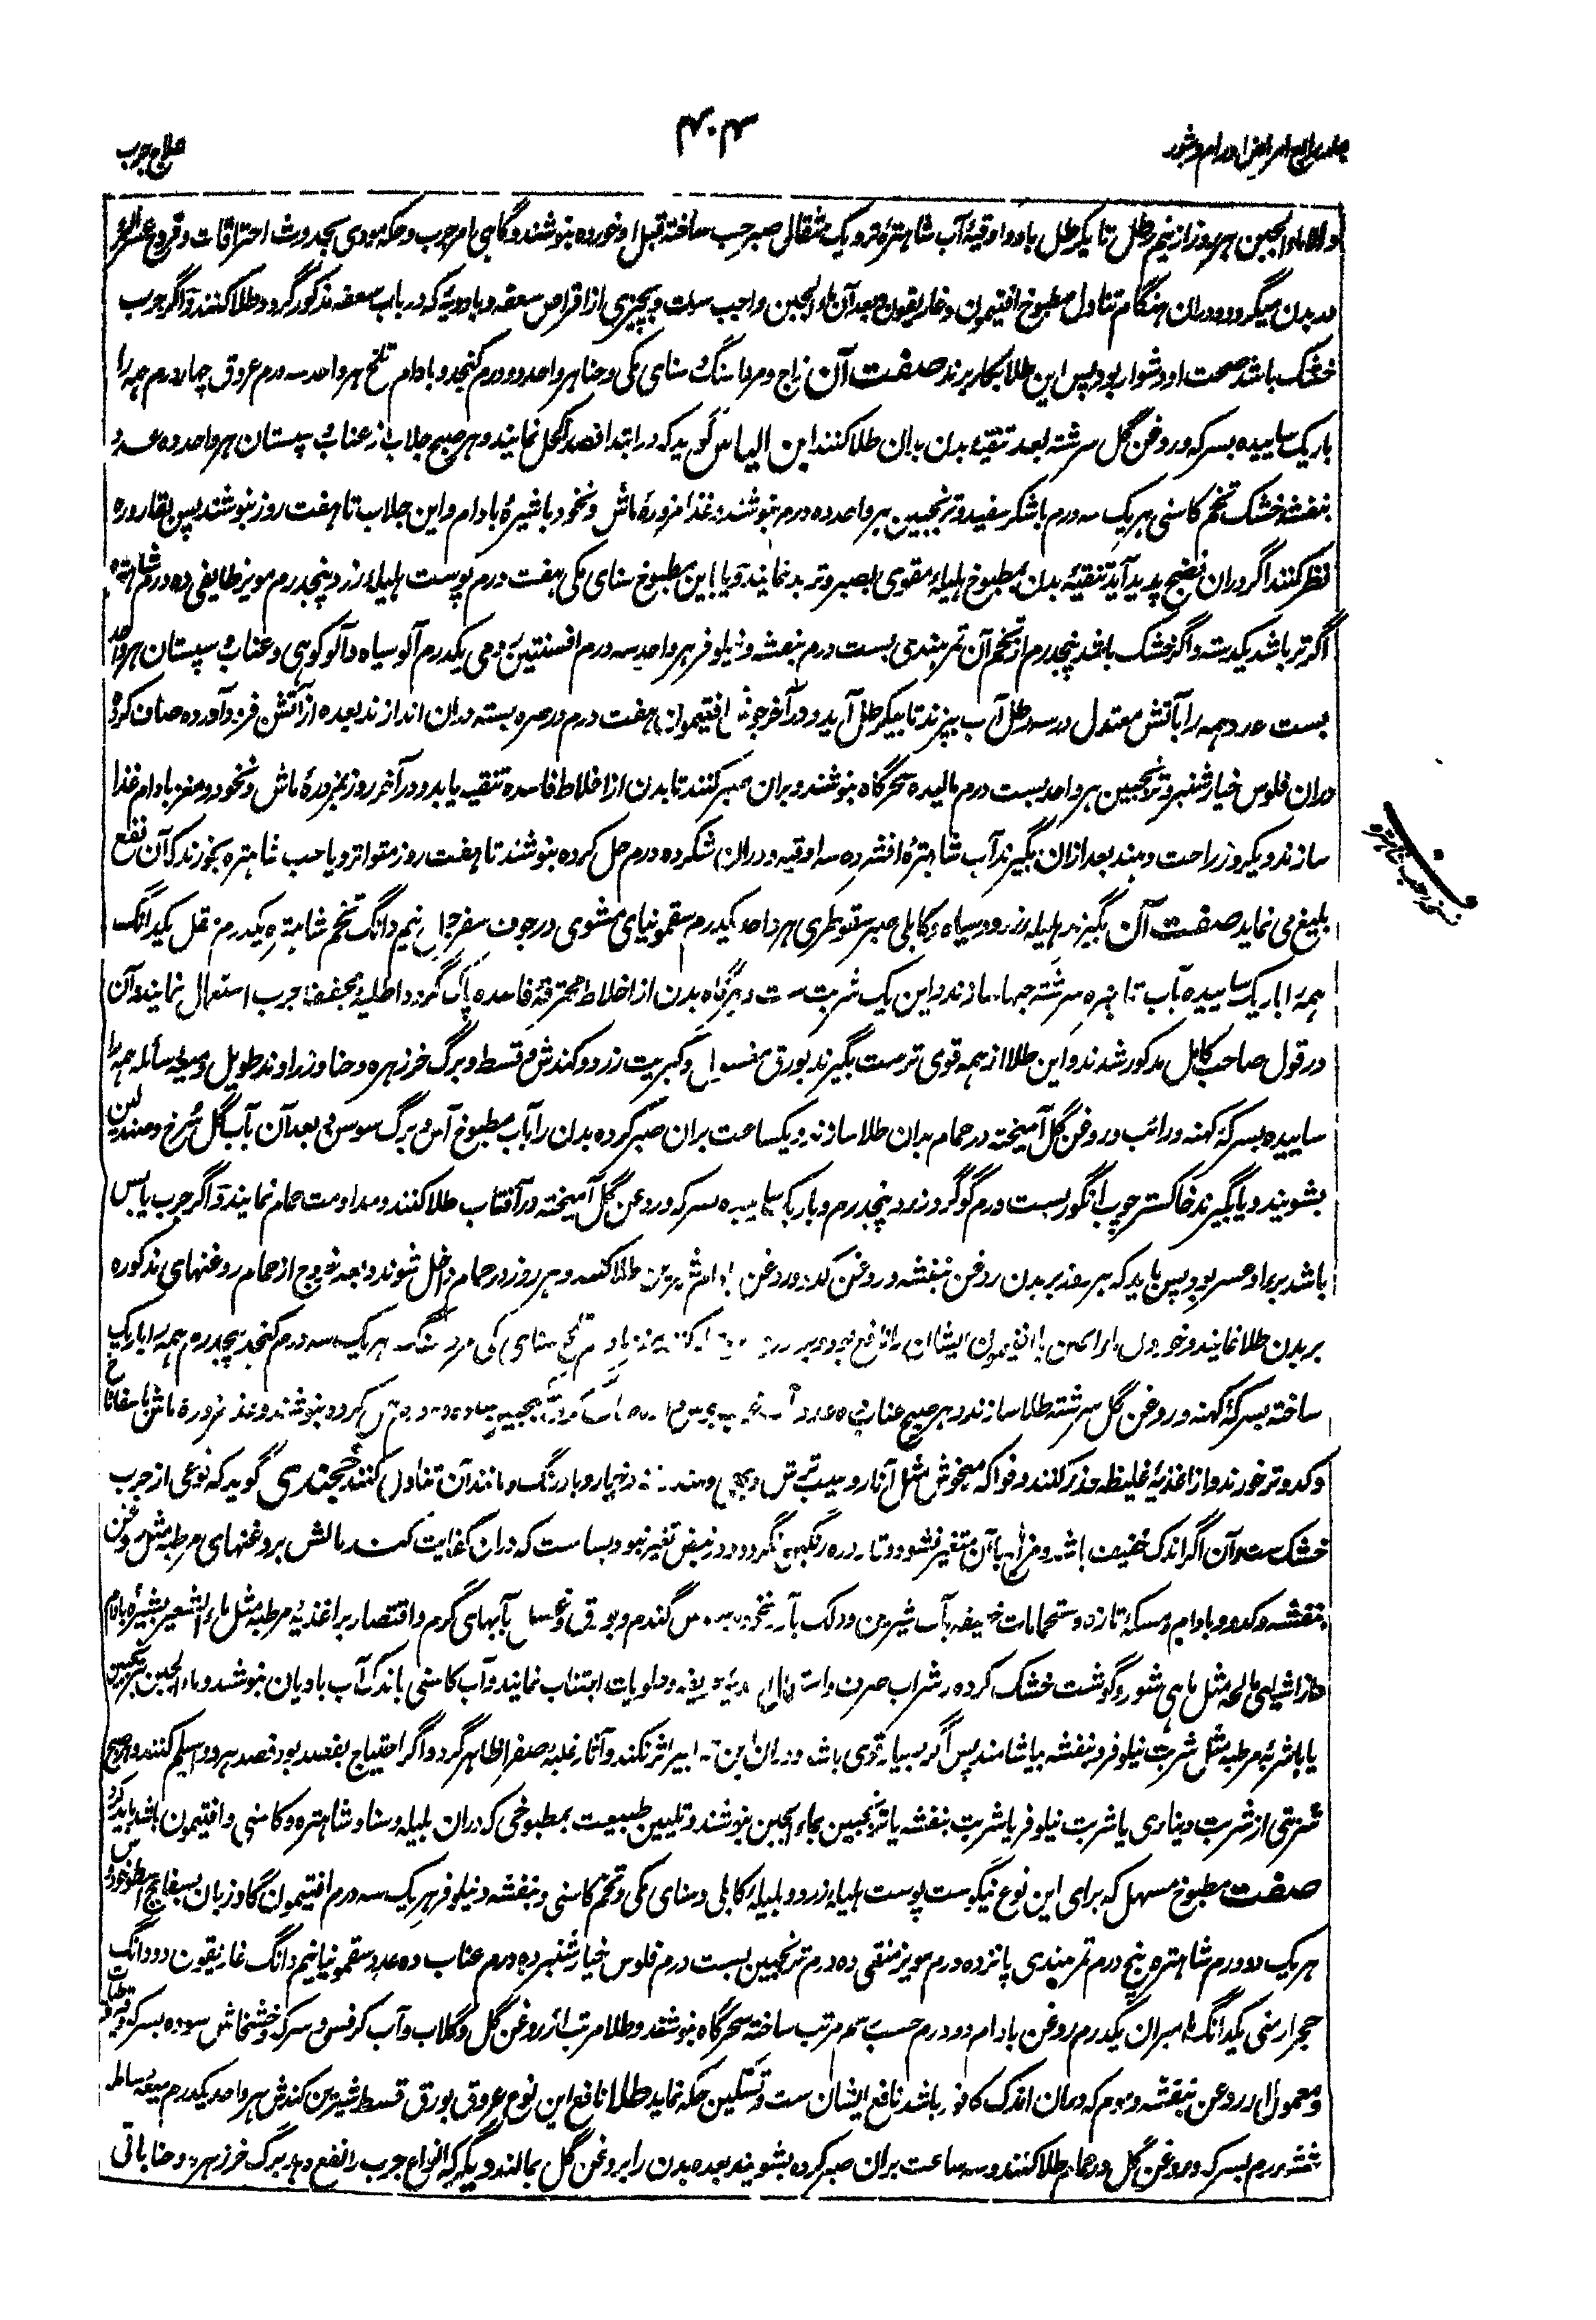 جلد رابع امراض اورام و بثور
۴۰۴
علاج جرب
اولا ماء الجبن هر روز از نیم رطل تا یک رطل با دو اوقیه آب شاهتره تر و یک مثقالی صبر حب ساخته قبل او خورده بنوشند و گاهی امر جرب و حکه مودی بحدوث احتراقات و قروح عسر البرء
در بدن میگردد و دران هنگام تناول مطبوخ افتیمون و غاریقون و بعد آن ماء الجبن واجب ست و بچیزی از اقراص سعفه و بادویه که در باب سعفه مذکور گردد طلا کنند و اگر جرب
خشک باشد صحت او دشوار بود پس این طلا بکار برند صفت آن زاج و مرداسنگ و سنای مکی و حنا هر واحد دو درم کنجد و بادام تلخ هر واحد سه درم عروق چهار درم همه را
باریک ساییده بسرکه و روغن گل سرشته بعد تنقیه بدن بدان طلا کنند ابن الیاس گوید که در ابتدا فصد اکحل نمایند و هر صبح جلاب از عناب و سپستان هر واحد ده عدد
بنفشه خشک تخم کاسنی هر یک سه درم با شکر سفید و ترنجبین هر واحد ده درم بنوشند و غذا مزوره ماش و نخود با شیره بادام و این جلاب تا هفت روز بنوشند پس بقاروره
نظر کنند اگر دران نضج پدید آید تنقیه بدن بمطبوخ هلیله مقوی بصبر و تربد نمایند و یا باین مطبوخ سنای مکی هفت درم پوست هلیله زرد پنجدرم مویز طایفی ده درم شاهتره
اگر تر باشد یکدسته و اگر خشک باشد پنجدرم از تخم آن تمر هندی بست درم بنفشه و نیلوفر هر واحد سه درم افسنتین رومی یکدرم آلو سیاه و آلو کوهی و عناب و سپستان هر واحد
بست عدد همه را بآتش معتدل در سه رطل آب بپزند تا بیکرطل آید و در آخر جوش افتیمون هفت درم در صره بسته دران اندازند بعده از آتش فرود آورده صاف کرده
دران فلوس خیارشنبر و ترنجبین هر واحد بست درم مالیده سحرگاه بنوشند و بران صبر کنند تا بدن از اخلاط فاسده تنقیه یابد و در آخر روز بمزوره ماش و نخود و مغز بادام غذا
سازند و یکروز راحت دهند بعد ازان بگیرند آب شاهتره افشرده سه اوقیه و دران شکر ده درم حل کرده بنوشند تا هفت روز متواتر و یا حب شاهتره بخورند که آن نفع
بلیغ می نماید صفت آن بگیرند هلیله زرد و سیاه و کابلی صبر سقوطری هر واحد یکدرم سقمونیای مشوی در جوف سفرجل نیم دانگ تخم شاهتره یکدرم مقل یکدانگ
همه را باریک ساییده بآب شاهتره سرشته حبها سازند و این یک شربت ست و هرگاه بدن از اخلاط محترقه فاسده پاک گردد اطلیه مجففه جرب استعمال نمایند و آن
در قول صاحب کامل مذکور شدند و این طلا از همه قوی تر ست بگیرند بورق مغسول و کبریت زرد و کندش و قسط و برگ خرزهره و حنا و زراوند طویل و میعه سائله همه را
ساییده بسرکه کهنه و رائب و روغن گل آمیخته در حمام بدان طلا سازند و یکساعت بران صبر کرده بدن را بآب مطبوخ آس و برگ سوسن و بعد آن بآب گل سرخ و صندلین
بشویند و یا بگیرند خاکستر چوب انگور بست درم گوگرد زرد پنجدرم و باریک ساییده بسرکه و روغن گل آمیخته در آفتاب طلا کنند و مداومت حمام نمایند و اگر جرب یابس
باشد برء او عسر بود پس باید که هر روز بر بدن روغن بنفشه و روغن کدو و روغن بادام شیرین طلا کنند و هر روز در حمام داخل شوند و بعد خروج از حمام روغنهای مذکوره
بر بدن طلا نمایند و خوردن ماء الجبن با افتیمون ایشان را نافع بود سنای مکی مردارسنگ هر یک سه درم کنجد پنجدرم همه را باریک
ساخته بسرکه کهنه و روغن گل سرشته طلا سازند و هر صبح عناب ده عدد کرده بنوشند و غذا مزوره ماش با اسفاناخ
و کدو تر خورند و از اغذیه غلیظه حذر کنند و فواکه میخوش مثل انار و سیب ترش و خیار و بادرنگ و مانند آن تناول کنند خجندی گوید که نوعی از جرب
خشک ست و آن اگر اندک خفیف باشد و مزاج بآن متغیر نشود و قاروره رنگین نگردد و در نبض تغیر نبود بسا ست که دران کفایت کند مالش بروغنهای مرطبه مثل روغن
بنفشه و کدو و بادام و مسکه تازه و استحمامات خفیفه بآب شیرین و دلک بآرد نخود و سبوس گندم و بورق و غسل بآبهای گرم و اقتصار بر اغذیه مرطبه مثل ماء الشعیر بشیره بادام
و از اشیای مالحه مثل ماهی شور و گوشت خشک کرده و شراب صرف و حلویات اجتناب نمایند و آب کاسنی باندک آب بادیان بنوشند و ماء الجبن بسکنجبین
یا باشربه مرطبه مثل شربت نیلوفر و بنفشه بیاشامند پس اگر بسیار قوی باشد و دران این تدابیر اثر نکند و آثار غلبه صفرا ظاهر گردد و اگر احتیاج بفصد بود فصد هر دو اسیلم کنند و هر صبح
شربتی از شربت دیناری یا شربت نیلوفر یا شربت بنفشه یا ترنجبین بماء الجبن بنوشند و تلیین طبیعت بمطبوخی که دران هلیله و سنا و شاهتره و کاسنی و افتیمون باشد باید کرد
صفت مطبوخ مسهل که برای این نوع نیکوست پوست هلیله زرد و هلیله کابلی و سنای مکی و تخم کاسنی و بنفشه و نیلوفر هر یک سه درم افتیمون گاوزبان بسفائج اسطوخودس
هر یک دو درم شاهتره پنج درم تمر هندی پانزده درم مویز منقی ده درم ترنجبین بست درم فلوس خیارشنبر ده درم عناب ده عدد سقمونیا نیم دانگ غاریقون دو دانگ
حجر ارمنی یکدانگ یکدرم روغن بادام دو درم حسب رسم مرتب ساخته سحرگاه بنوشند و طلا مرتب از روغن گل و گلاب و آب کرفس و سرکه و خشخاش سوده بسرکه
و معمول از روغن بنفشه و موم که دران اندک کافور باشد نافع ایشان ست و تسکین حکه نماید طلا نافع این نوع عروق بورق قسط شیرین کندش هر واحد یکدرم میعه سائله
شش درم بسرکه و روغن گل در حمام طلا کنند و سه ساعت بران صبر کرده بشویند بعده بدن را بروغن گل بمالند دیگر که انواع جرب را نفع دهد برگ خرزهره و حنا باقی
نسخه حب شاهتره